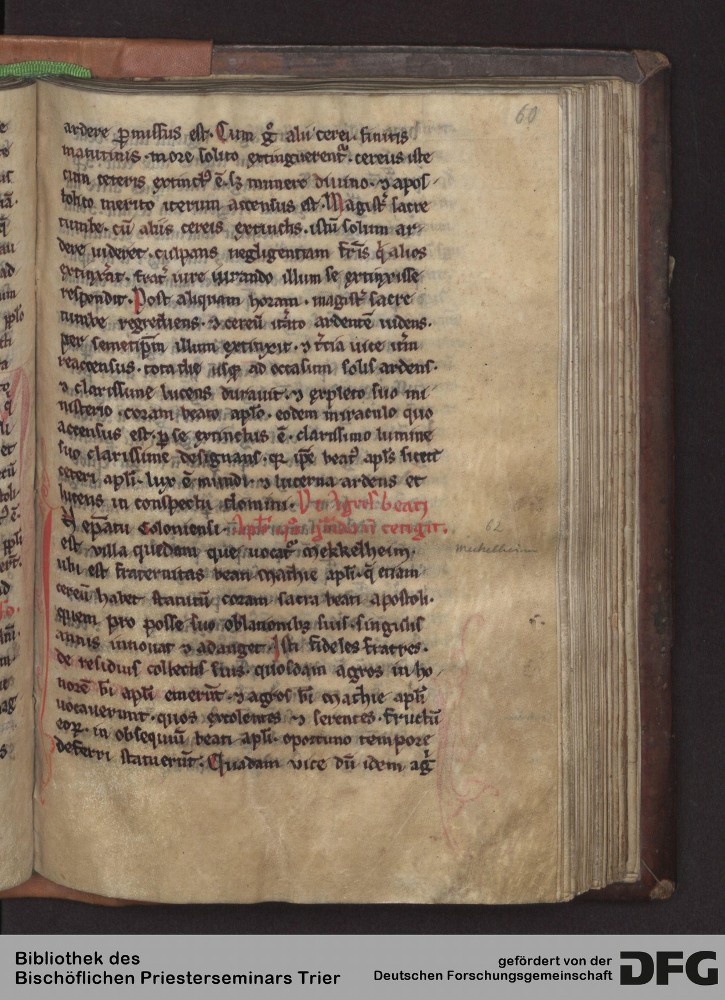 60
ardere ꝑmissus est. Cum gͦ alii cerei finitis
matutinis more solito extinguerent᷑. cereus iste
cum ceteris extinctꝰ ē. sꝫ munere diuino. ⁊ apos-
tolico merito iterum accensus est. Magist᷑ sacre
tumbe. cū aliis cereis extinctis. istū solum ar-
dere uideret. culpans negligentiam fr̄is qͥ alios
extinx̄at. frat᷑ iure iurando illum se extinxisse
respondit. Post aliquam horam. magist᷑ sacre
tumbe regrediens. ⁊ cereū itͤito ardentē uidens.
per semetip̄m illum extinxit. ⁊ tͤcia uice itͤm
reaccensus. tota die usqꝫ ad occasum solis ardens.
⁊ clarissime lucens durauit. ⁊ expleto suo mi-
nisterio. coram beato ap̄lo. eodem miraculo quo
accensus est. ꝑ se extinctus ē. clarissimo lumine
suo clarissime designans. qꝛ ip̄e beatꝰ ap̄ls sicut
ceteri ap̄li. lux ē mundi. ⁊ lucerna ardens et
lucens in conspectu domini. De agros beati
In epatu Coloniensi. ap̄li
est uilla quedam que uocat᷑ mekkelheim.
ubi est fraternitas beati mathie ap̄li. q̄ etiam
cereū habet statutū coram sacra beati apostoli.
quem pro posse suo oblationibꝫ suis. singulis
annis innouat ⁊ adauget. Isti fideles fratres.
de residuis collectis suis. quosdam agros in ho-
norē b̄i ap̄li emerūt. ⁊ agros b̄i mathie ap̄li
uocauerunt. quos excolentes ⁊ serentes. fructū
eoꝝ. in obsequiū beati ap̄li. oportuno tempore
deferri statuerūt. Quadam uice dū idem agͥ
62
Meckelheim
Bibliothek des
Bischöflichen Priesterseminars Trier
gefördert von der
Deutschen Forschungsgemeinschaft
DFG